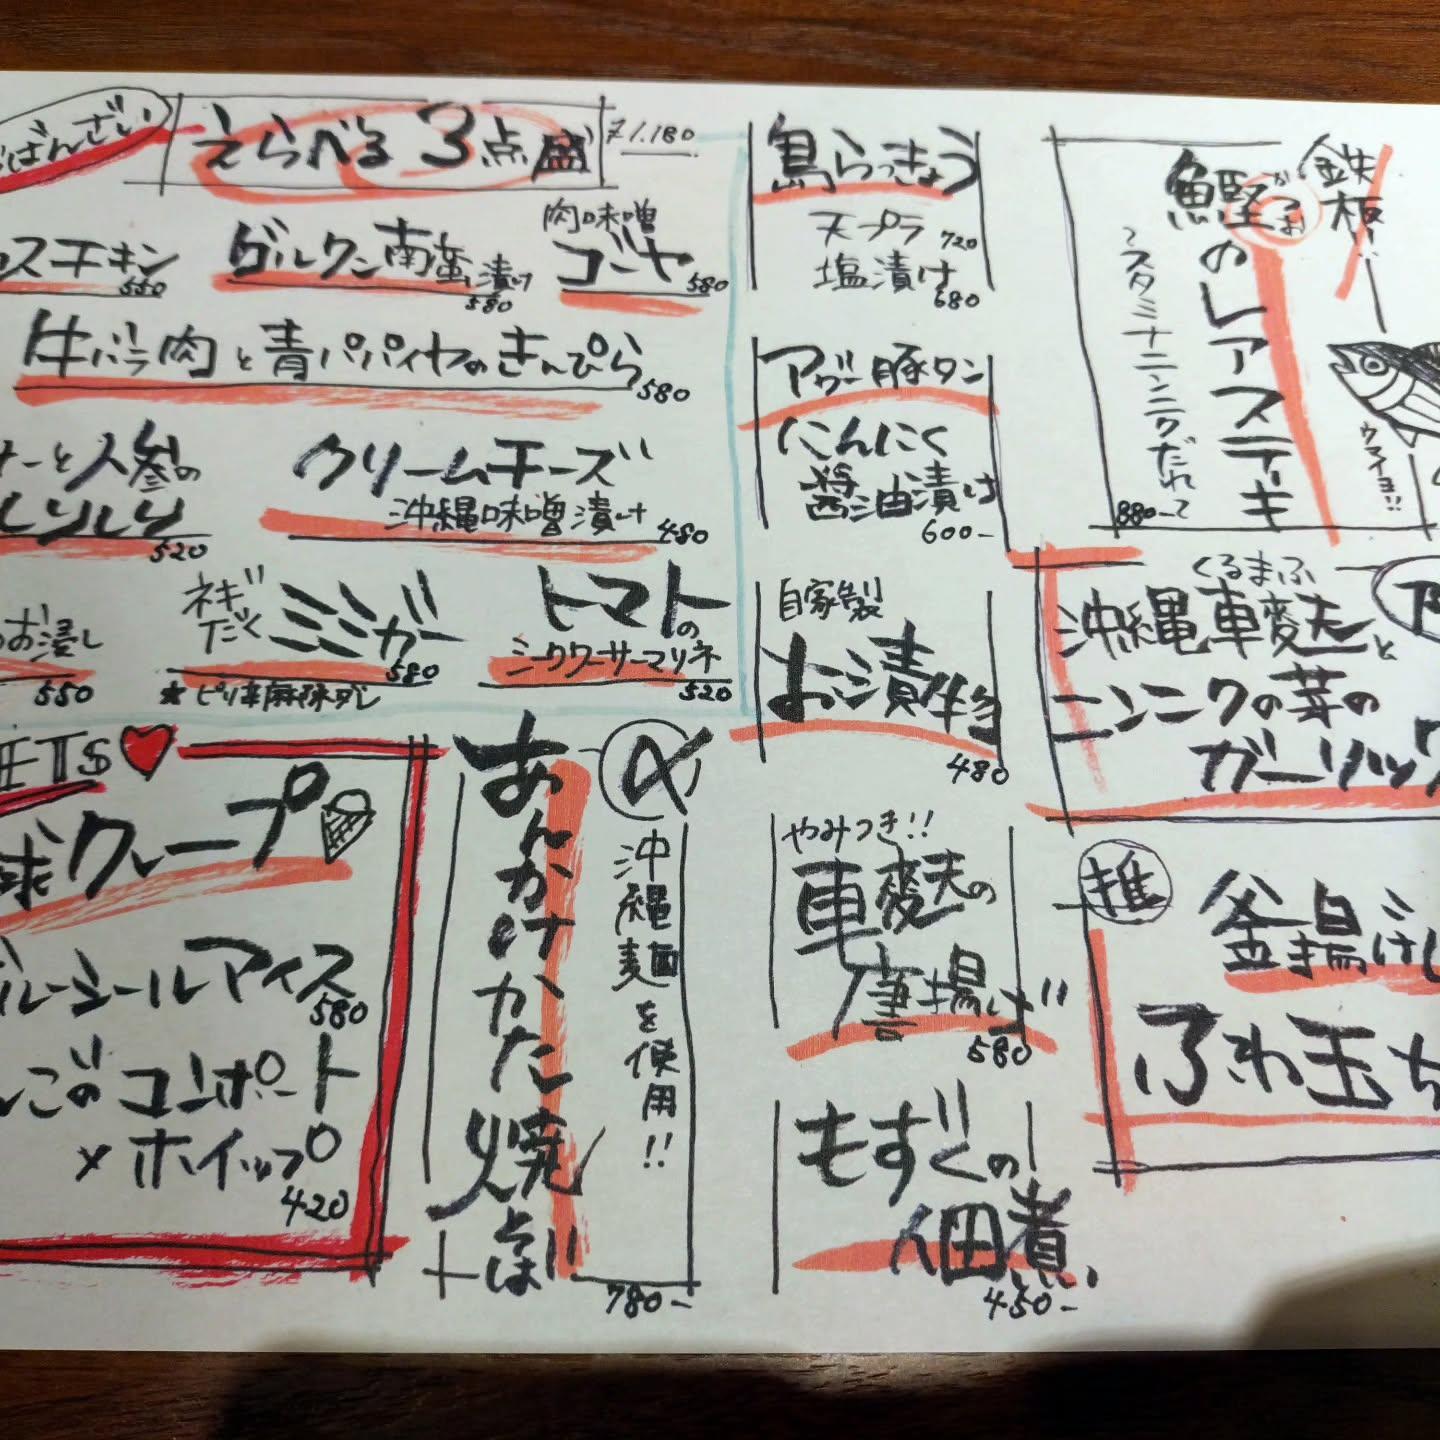 ばんざい
えらべる3点盛 ¥1.180
スチキン 550
グルクン南蛮漬け 580
肉味噌
ゴーヤ 580
牛バラ肉と青パパイヤのきんぴら 580
サーと人参の
しりしり 520
クリームチーズ
沖縄味噌漬け 480
お浸し 550
ネギ
だく
ミミガー 580
★ピリ辛麻辣ダレ
トマトの
シークワーサーマリネ 520
ETS
球クレープ
ブルーシールアイス 580
んごのコンポート
×ホイップ 420
あんかけかた焼そば
沖縄麺を使用!!
780-
島らっきょう
天プラ 720
塩漬け 680
アグー豚タン
にんにく
醤油漬け
600-
自家製
お漬物
480
やみつき!!
車麩の
唐揚げ
580
もずくの
佃煮
450-
鉄板!!
鰹のレアステーキ
かつお
~スタミナニンニクだれで
880-
ウマイヨ!!
くるまふ
沖縄車麩と
ニンニクの芽の
ガーリック
推
釜揚げし
ふわ玉ち